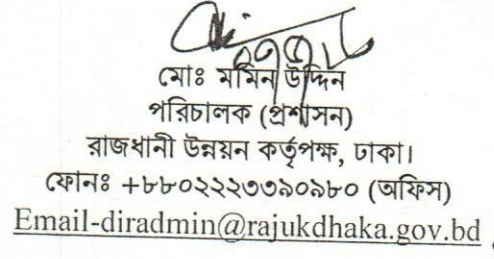 মোঃ মমিন উদ্দিন
পরিচালক (প্রশাসন)
রাজধানী উন্নয়ন কর্তৃপক্ষ, ঢাকা।
ফোনঃ +৮৮০২২২৩৩৯০৯৮০ (অফিস)
Email-diradmin@rajukdhaka.gov.bd